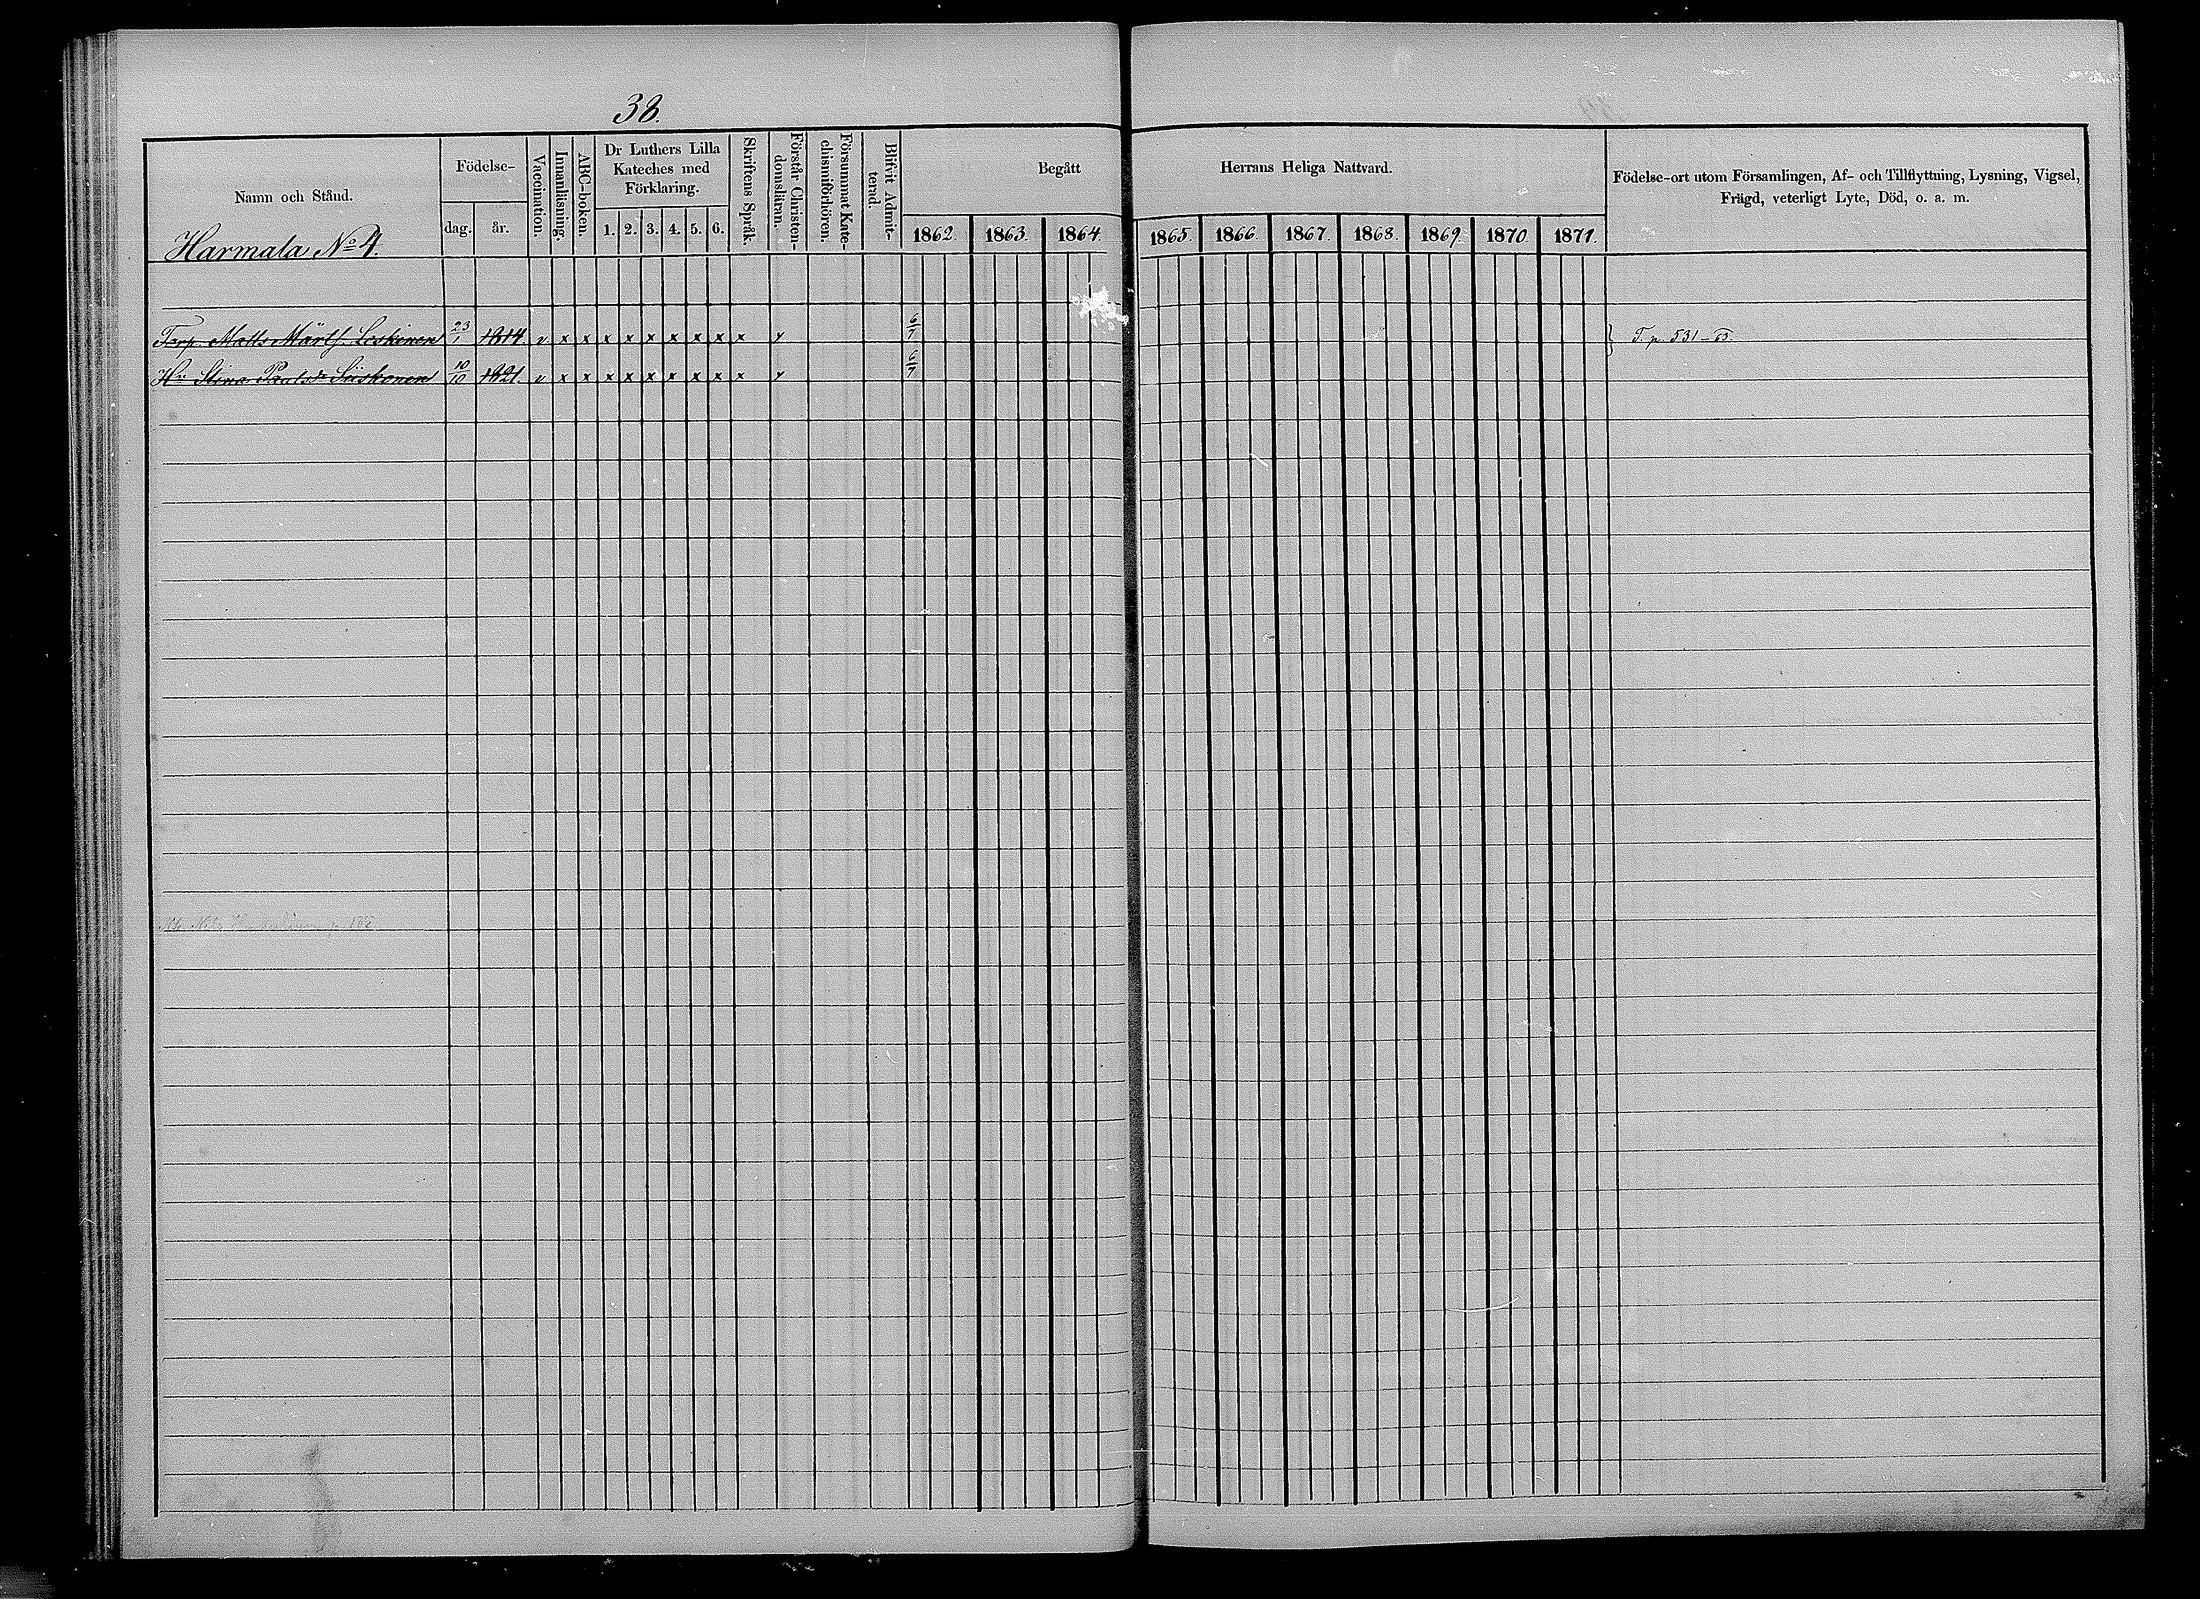 38.
Namn och Stånd.
Harmala No 4.
Födelse-
dag. år.
Vaccination.
Innanläsning.
ABC-boken.
Dr Luthers Lilla
Kateches med
Förklaring.
1. 2. 3. 4. 5. 6.
Skriftens Språk.
Förstår Christen-
domsläran.
Försummat Kate-
chismiförhören.
Blifvit Admit-
terad.
Begått Herrans Heliga Nattvard.
1862. 1863. 1864. 1865. 1866. 1867. 1868. 1869. 1870. 1871.
Födelse-ort utom Församlingen, Af- och Tillflyttning, Lysning, Vigsel,
Frägd, veterligt Lyte, Död, o. a. m.
Torp. Matts Märts. Leskinen 23/1 1814 v x x x x x x x x x y 6/7 } T. p. 531 – 63.
Hu Stina Paulsdr Siiskonen 10/10 1821. v x x x x x x x x x y 6/7